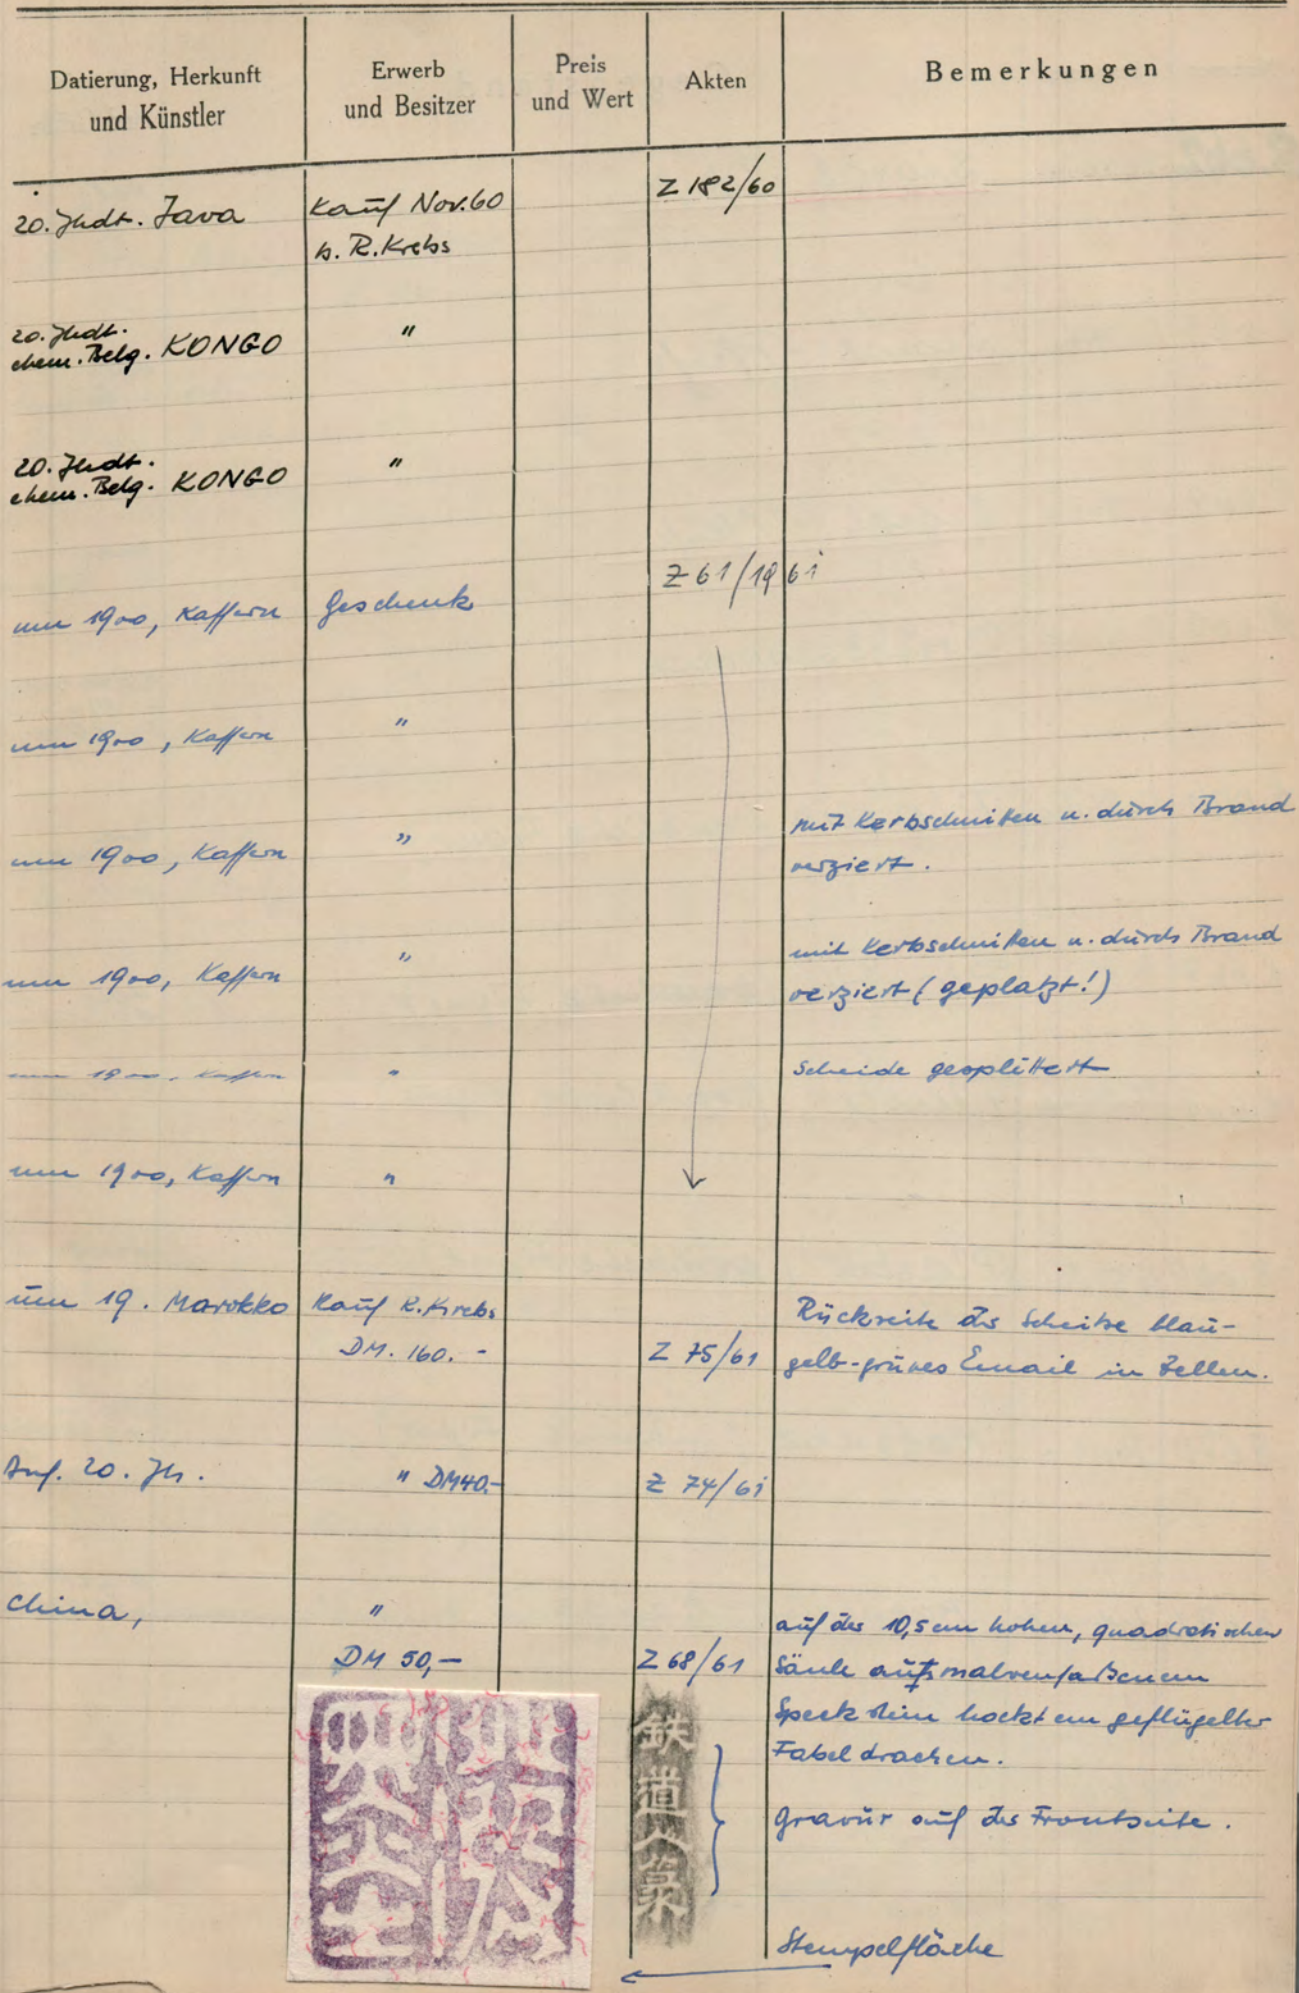 Datierung, Herkunft
und Künstler
Erwerb
und Besitzer
Preis
und Wert
Akten
Bemerkungen
20. Jhdt. Java
Kauf Nov. 60
b. R. Krebs
Z 182/60
20. Jhdt.
ehem. Belg. KONGO
"
20. Jhdt.
ehem. Belg. KONGO
"
um 1900, Kaffern
Geschenk
Z 61/1961
um 1900, Kaffern
"
um 1900, Kaffern
"
mit Kerbschnitten u. durch Brand
verziert.
um 1900, Kaffern
"
mit Kerbschnitten u. durch Brand
verziert (geplatzt!)
um 1900, Kaffern
"
Scheide gesplittert
um 1900, Kaffern
"
um 19. Marokko
Kauf R. Krebs
DM. 160.-
Z 75/61
Rückseite der Scheibe blau-
gelb-grünes Email in Zellen.
Anf. 20. Jh.
" DM 40.-
Z 74/61
China,
"
DM 50,-
Z 68/61
auf der 10,5 cm hohen, quadratischen
Säule aus malvenfarbenem
Speckstein hockt ein geflügelter
Fabeldrachen.
鉄道人篆
Gravur auf der Frontseite.
Stempelfläche